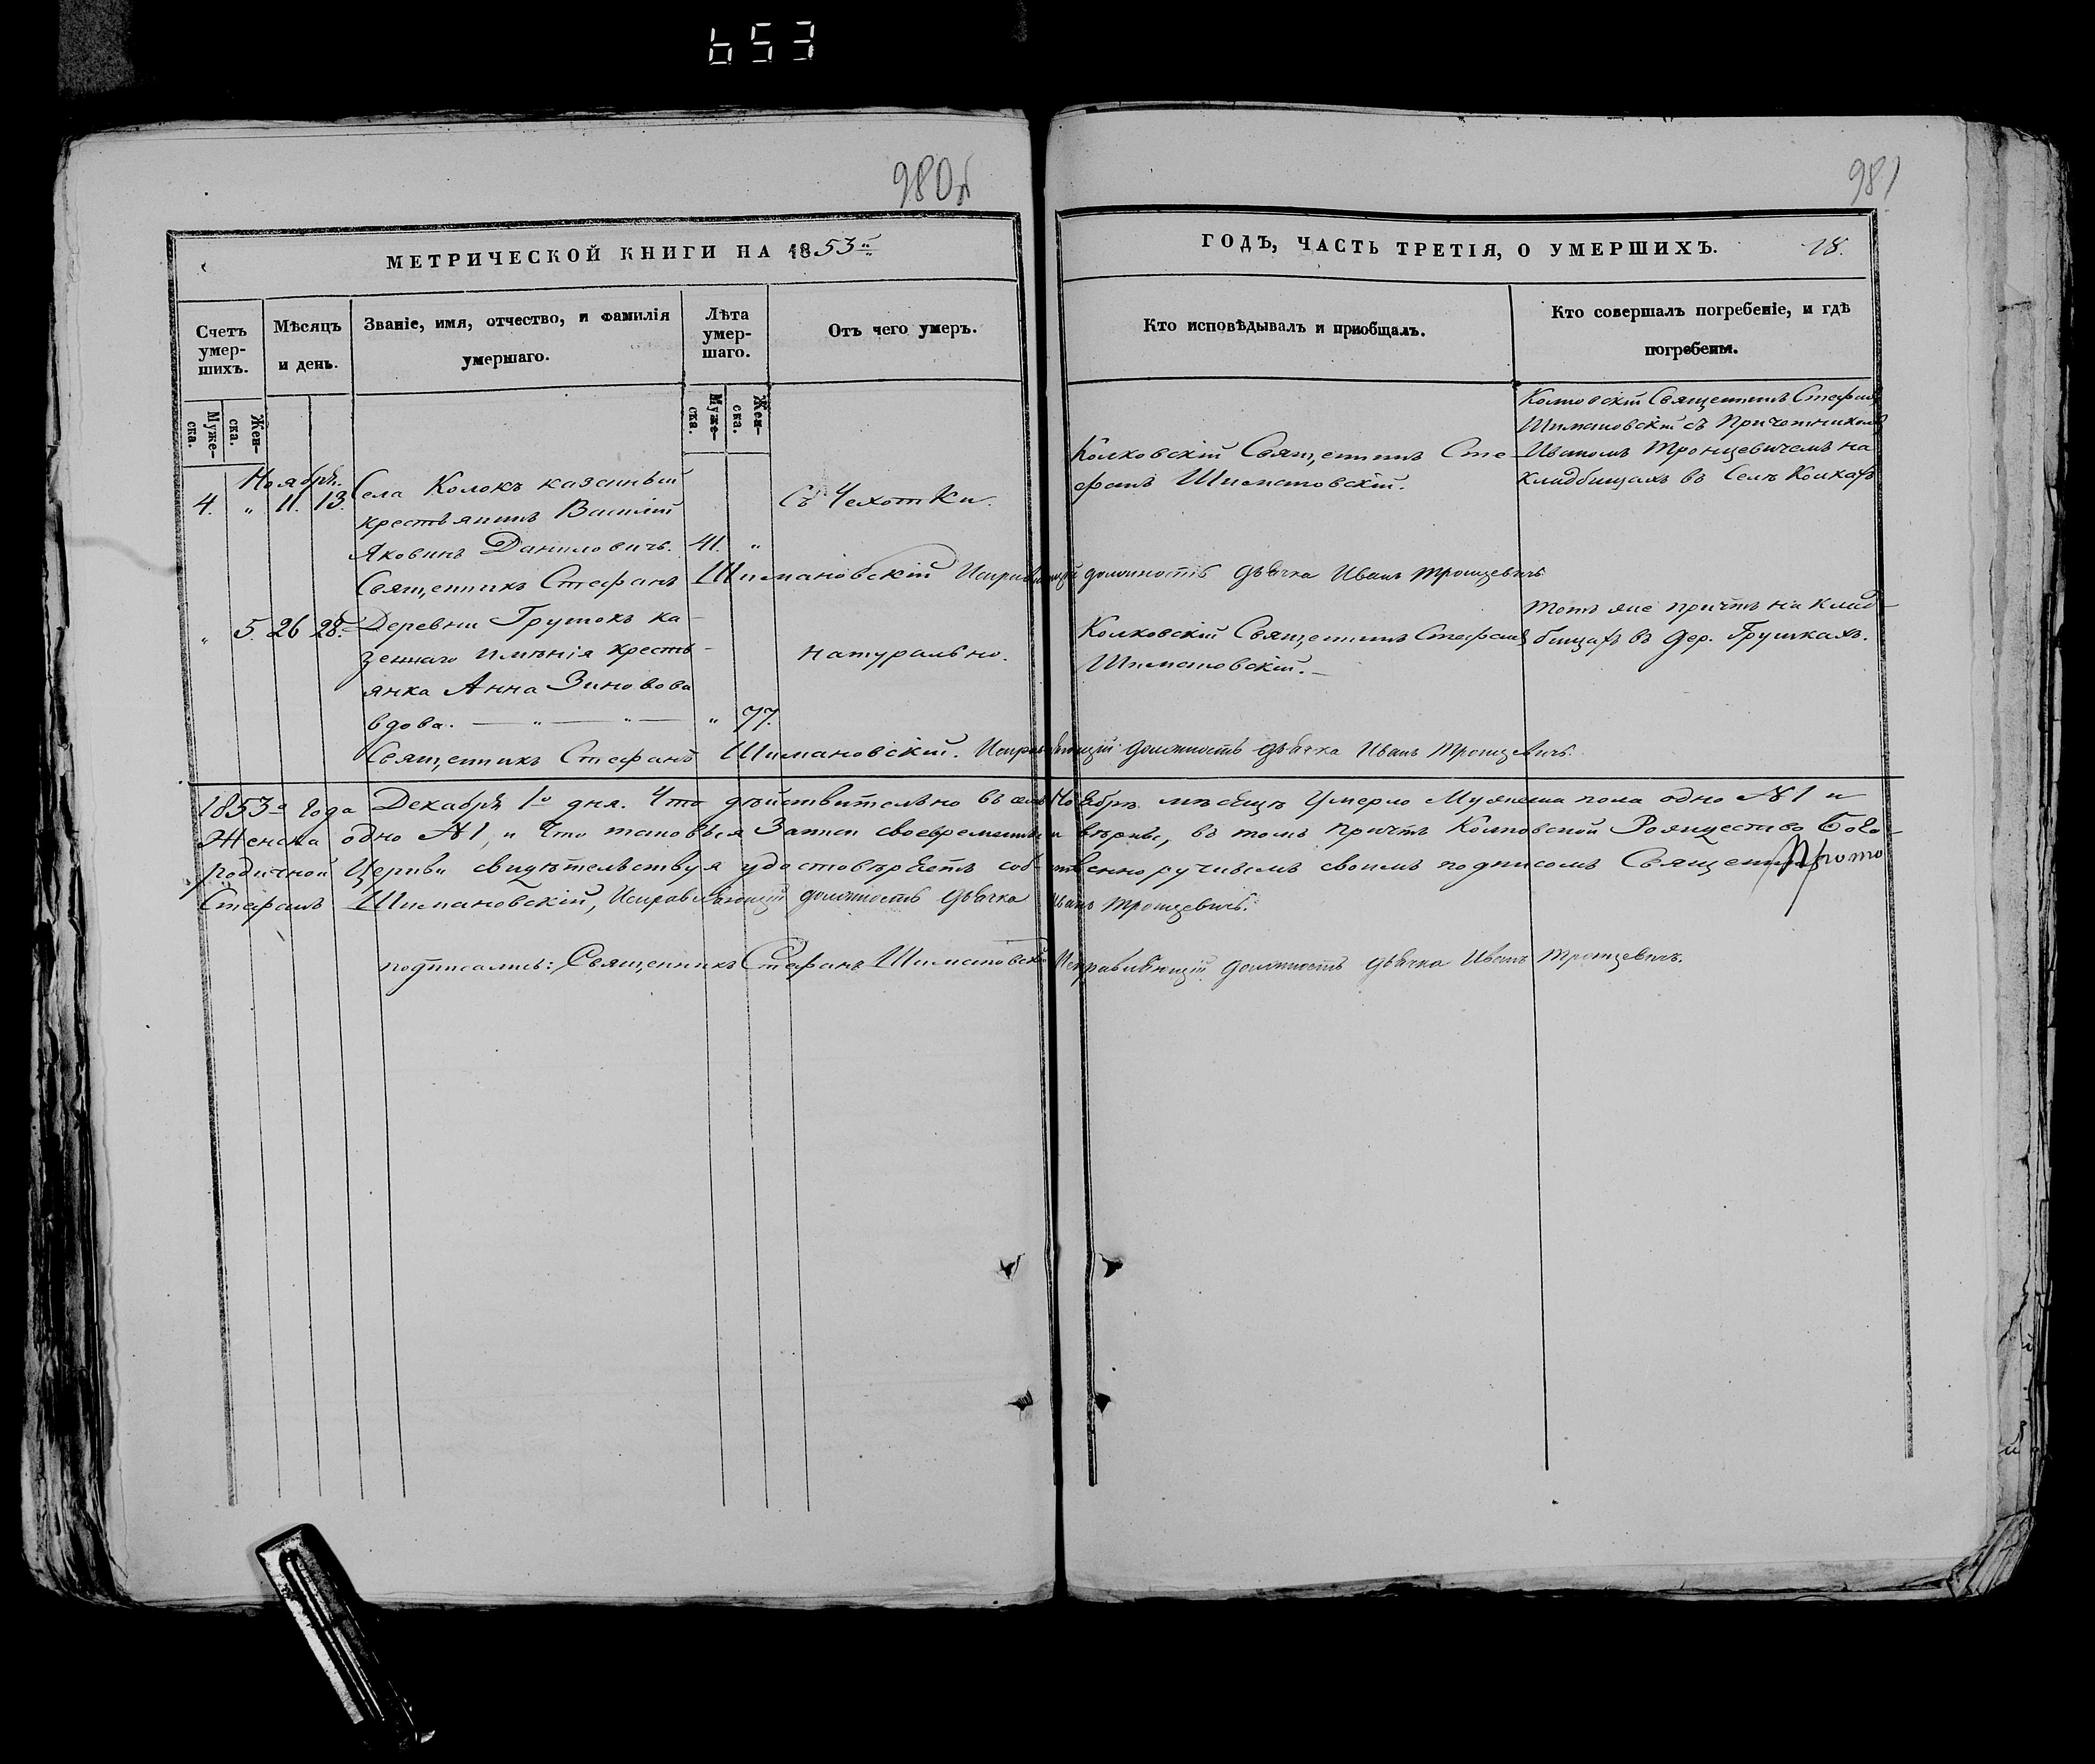 653
980б
981
МЕТРИЧЕСКОЙ КНИГИ НА 1853й
ГОДЪ, ЧАСТЬ ТРЕТІЯ, О УМЕРШИХЪ. 18.
Счетъ умер-шихъ.
Мѣсяцъ и день.
Званіе, имя, отчество, и фамилія умершаго.
Лѣта умер-шаго.
Отъ чего умеръ.
Кто исповѣдывалъ и приобщалъ.
Кто совершалъ погребеніе, и гдѣ погребены.
Муже-ска.
Жен-ска.
Муже-ска.
Жен-ска.
Ноябрь.
4. " 11. 13.
Села Колокъ казенный
крестьянинъ Василій
Яковинъ Даниловичъ. 41. "
Съ Чехотки.
Колковскій Священникъ Сте-
фанъ Шимановскій.
Колковскій Священникъ Стефанъ
Шимановскій съ Причетникомъ
Иваномъ Тронцевичемъ на
Кладбищахъ въ Селѣ Колкахъ
Священникъ Стефанъ Шимановскій Исправляющій должность дьячка Иванъ Тронцевичъ
" 5. 26 28.
Деревни Грушокъ ка-
зеннаго имѣнія кресть-
янка Анна Зиновова
вдова. — " — " — " 77.
натурально.
Колковскій Священникъ Стефанъ
Шимановскій.—
Тотъ же причтъ на клад-
бищахъ въ дер. Грушкахъ.
Священникъ Стефанъ Шимановскій. Исправляющій должность дьячка Иванъ Тронцевичъ.
1853го года Декабря 1го дня. Что дѣйствительно въ семъ Ноябрѣ мѣсяцѣ умерло Мужеска пола одно №1 и
Женска одно №1, и что таковыя Записи своевременны и вѣрны, въ томъ причтъ Колковской Рождество Бого-
родичной Церкви свидѣтельствуя удостовѣряетъ собственноручнымъ своимъ подписомъ Священникъ
Стефанъ Шимановскій, Исправляющій должность дьячка Иванъ Тронцевичъ.
подписались: Священникъ Стефанъ Шимановскій Исправляющій должность дьячка Иванъ Тронцевичъ.